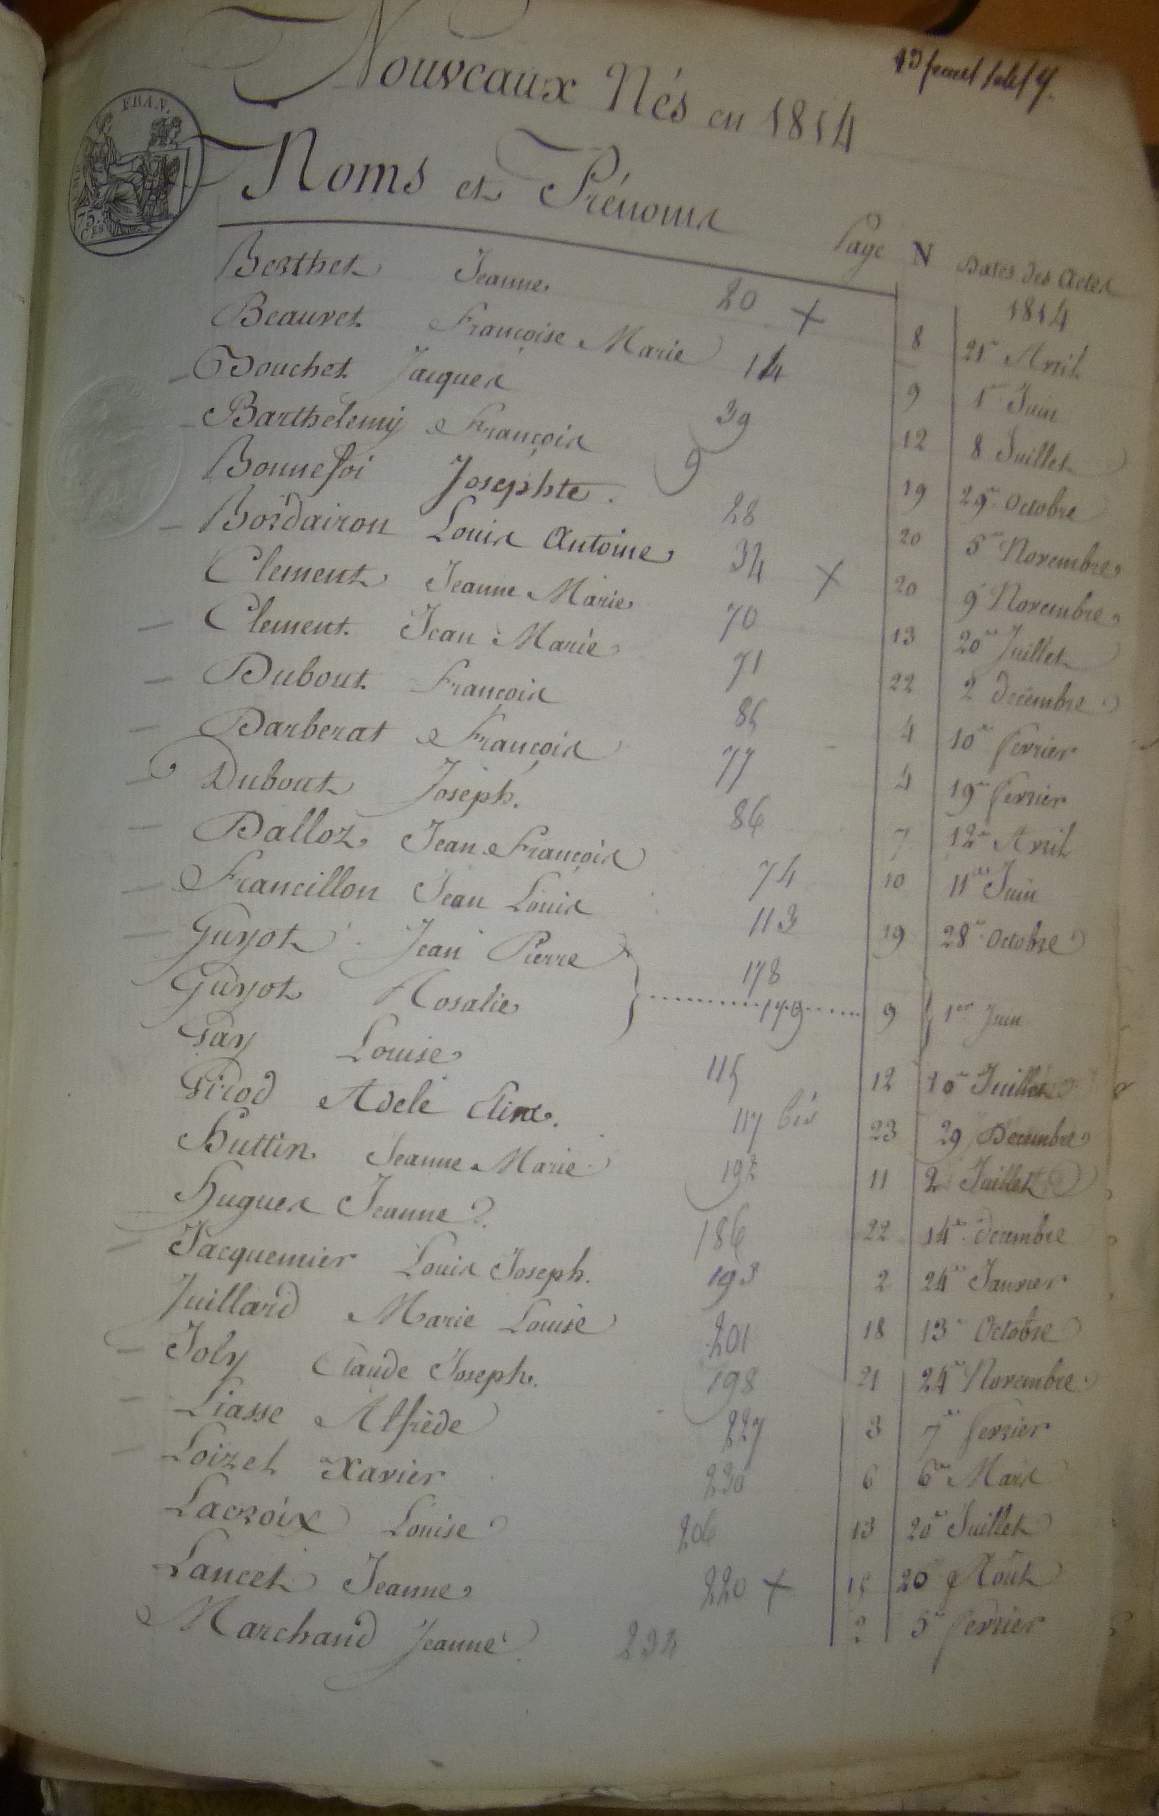 Nouveaux Nés en 1814
Noms et Prénoms
Page N Dates des Actes
1814
Berthet Jeanne 20 + 8 21 Avril
Beauvet Françoise Marie 14 9 1 Juin
Bouchet Jacques 39 12 8 Juillet
Barthelemy François 9 19 29 Octobre
Bonnefoi Josephte 28 20 5 Novembre
Bordairon Louis Antoine 34 + 20 9 Novembre
Clement Jeanne Marie 70 13 20 Juillet
Clement Jean Marie 71 22 2 decembre
Dubout François 85 4 10 fevrier
Darberat François 77 4 19 fevrier
Dubout Joseph. 86 7 12 Avril
Dalloz Jean François 74 10 11 Juin
Francillon Jean Louis 113 19 28 Octobre
Guyot Jean Pierre 178
Guyot Rosalie 179 9 1er Juin
Gay Louise 115 12 10 Juillet
Girod Adele Eline. 117 bis 23 29 Decembre
Huttin Jeanne Marie 192 11 2 Juillet
Hugues Jeanne 186 22 14 decembre
Jacquemier Louis Joseph. 193 2 24 Janvier
Juillard Marie Louise 201 18 13 Octobre
Joly Claude Joseph. 198 21 24 Novembre
Liasse Alfrède 227 3 7 fevrier
Loizet Xavier 230 6 6 Mars
Lacroix Louise 206 13 20 Juillet
Lancet Jeanne 220 + 15 20 Août
Marchand Jeanne 234 2 5 fevrier
75.
CES